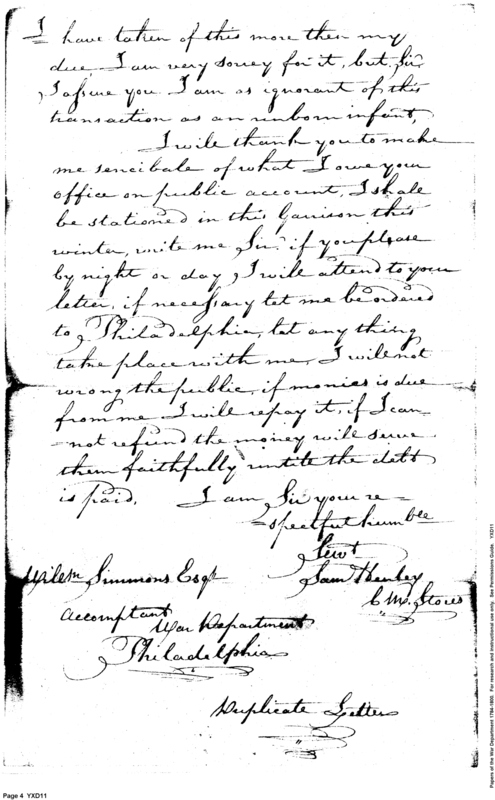 I have taken of this more then my
due I am very sorrey for it, but Sir,
I assure you I am as ignorant of this
transaction as an unborn infant,
I will thank you to make
me sencibale of what I owe your
office on public account, I shale
be stationed in this Garrison this
winter, write me Sir, if you please
by night or day, I will attend to your
letter, if necessary let me be ordered
to Philadelphia, let any thing
take place with me, I will not
wrong the public, if monies is due
from me I will repay it, if I can-
-not refund the money will serve
them faithfully untile the debt
is paid. I am Sir your re=
=spectful humble
Servt
Willm Simmons Esqr Sam Henley
C M, Stores
Accomptant
War Department
Philadelphia
Duplicate Letter
Page 4 YXD11
Papers of the War Department 1784-1800. For research and instructional use only. See Permissions Guide. YXD11